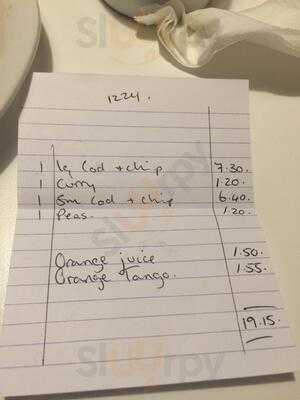 1224.
1 lg Cod + chip 7.30.
1 Curry 1.20.
1 Sm Cod + Chip 6.40.
1 Peas. 1.20.
Orange juice 1.50.
Orange Tango. 1.55.
19.15.
sluurpy
sluurpy
sluurpy
sluurpy